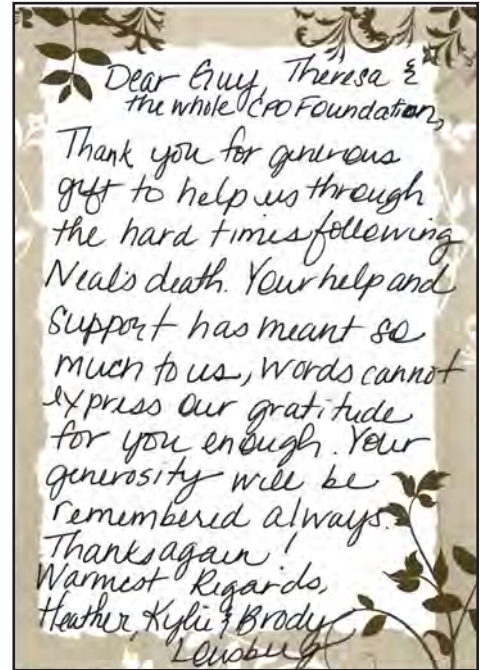 Dear Guy, Theresa &
the whole CPO Foundation,
Thank you for generous
gift to help us through
the hard times following
Neal's death. Your help and
support has meant so
much to us, words cannot
express our gratitude
for you enough. Your
generosity will be
remembered always.
Thanks again!
Warmest Regards,
Heather, Kylie & Brody